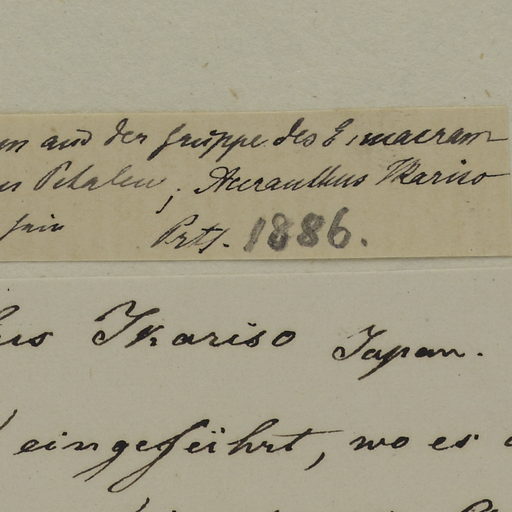 aus der Gruppe des E. macran-
Petalen; Aceranthus Ikariso
sein Prtf. 1886.
us Ikariso Japan.
eingeführt, wo es